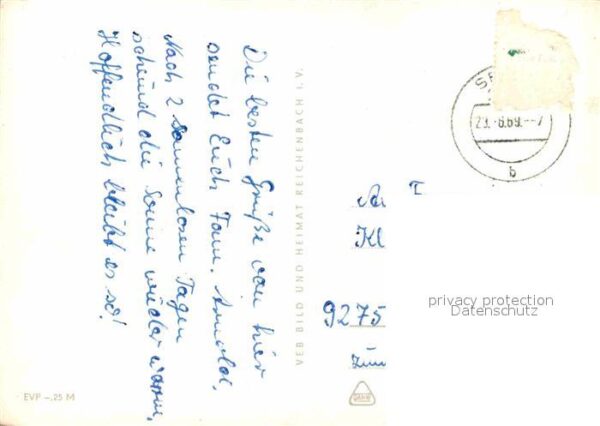 Die besten Grüße von hier
sendet Euch Fam.
Nach 2 Sonnenlosen Tagen
scheind die Sonne wieder warm,
Hoffendlich bleibt es so!
VEB BILD UND HEIMAT REICHENBACH I. V.
23.-6.69.--7
b
Kl
9275
privacy protection
Datenschutz
EVP –,25 M